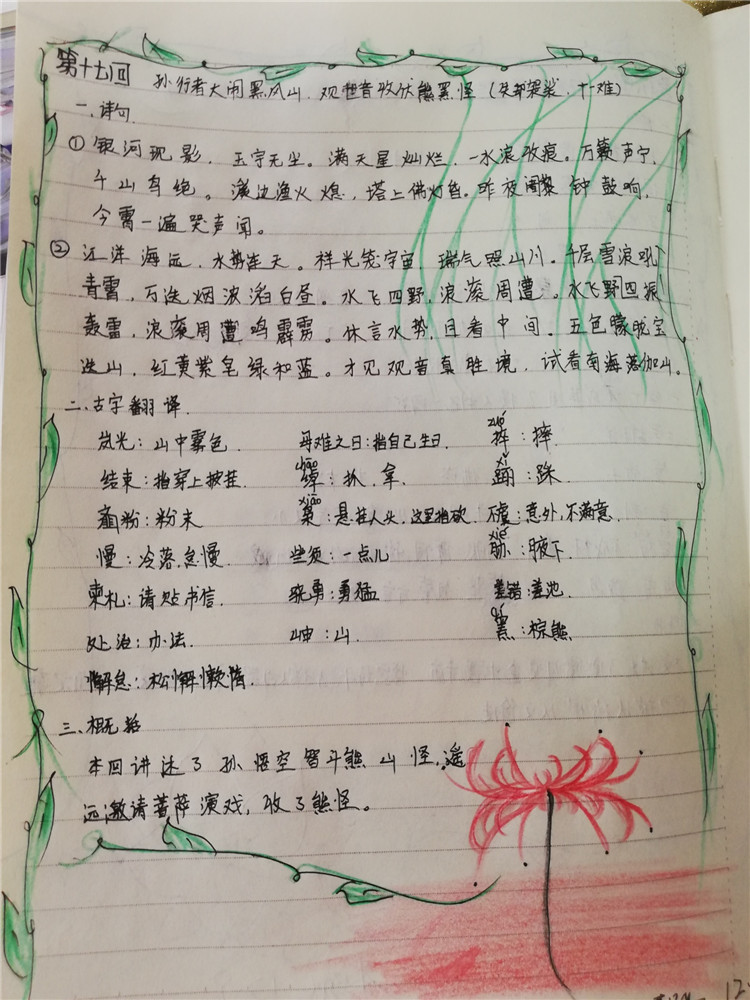 第十七回 孙行者大闹黑风山,观世音收伏熊黑怪(失却袈裟,十一难)
一、诗句.
①银河现影,玉宇无尘。满天星灿烂,一水浪收痕。万籁声宁,
千山鸟绝。溪边渔火熄,塔上佛灯昏。昨夜阇黎钟鼓响,
今霄一遍哭声闻。
②汪洋海远,水势连天。祥光笼宇宙,瑞气照山川。千层雪浪吼
青霄,万迭烟波滔白昼。水飞四野,浪滚周遭。水飞野四振
轰雷,浪滚周遭鸣霹雳。休言水势,且看中间。五色朦胧宝
迭山,红黄紫皂绿和蓝。才见观音真胜境,试看南海落伽山。
二、古字翻译.
岚光:山中雾色. 母难之日:指自己生日. 捽:摔
结束:指穿上披挂. 绰:抓,拿. 跴
齑粉:粉末 枭:悬挂人头,这里指砍. 不虞:意外,不满意.
慢:冷落,怠慢. 些须:一点儿 胁:腋下.
柬札:请贴书信. 骁勇:勇猛 差错:差池.
处治:办法. 山 :棕熊
懈怠:松懈懒惰.
三、概括
本回讲述了孙悟空智斗熊山怪,遥
远邀请菩萨演戏,收了熊怪。